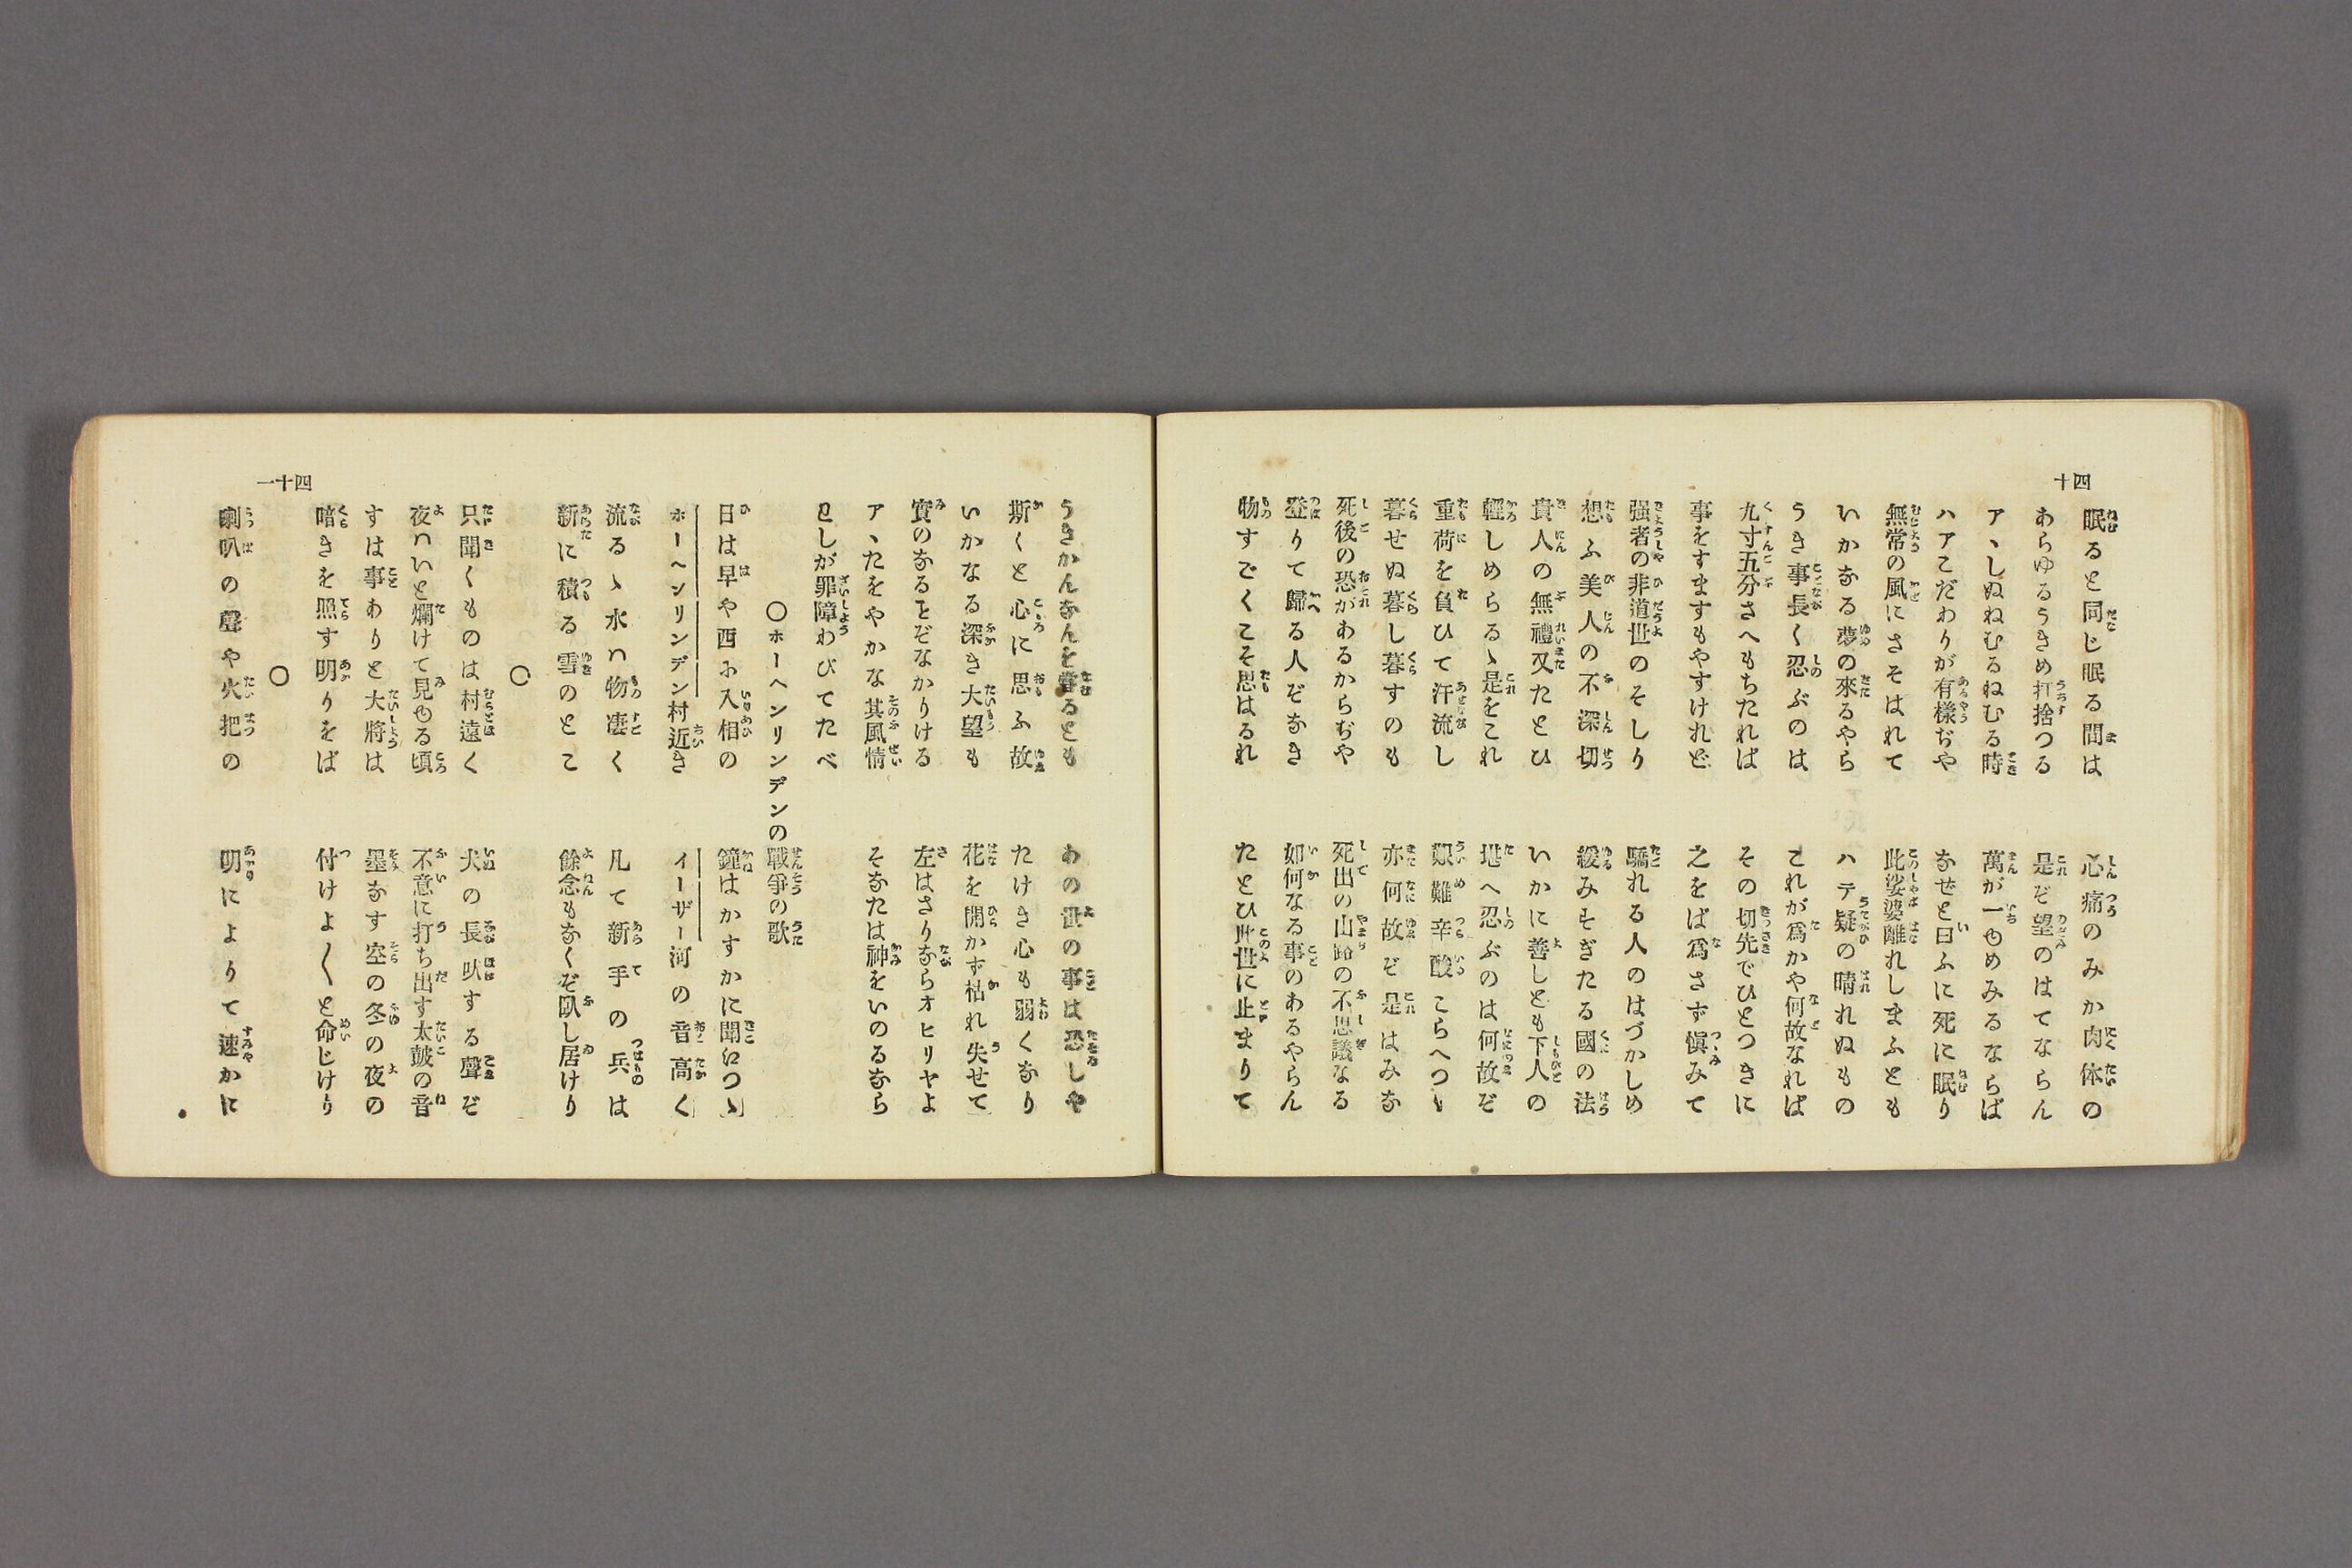 四十
眠ると同じ眠る間は　心痛のみか肉体の
あらゆるうきめ打捨つる　是ぞ望のはてならん
アヽしぬねむるねむる時　萬が一ゆめみるならば
ハアこだわりが有様ぢや　なぜと曰ふに死に眠り
無常の風にさそはれて　此娑婆離れしまふとも
いかなる夢の來るやら　ハテ疑の晴れぬもの
うき事長く忍ぶのは　これが爲かや何故なれば
九寸五分さへもちたれば　その切先でひとつきに
事をすますもやすけれど　之をば爲さず愼みて
强者の非道世のそしり　驕れる人のはづかしめ
想ふ美人の不深切　緩みすぎたる國の法
貴人の無禮又たとひ　いかに善しとも下人の
輕しめらるゝ是をこれ　堪へ忍ぶのは何故ぞ
重荷を負ひて汗流し　艱難辛酸こらへつゝ
暮せぬ暮し暮すのも　亦何故ぞ是はみな
死後の恐があるからぢや　死出の山路の不思議なる
登りて歸る人ぞなき　如何なる事のあるやらん
物すごくこそ思はるれ　たとひ此世に止まりて
四十一
うきかんなんを甞るとも　あの世の事は恐しや
斯くと心に思ふ故　たけき心も弱くなり
いかなる深き大望も　花を開かず枯れ失せて
實のなるとぞなかりける　左はさりながらオヒリヤよ
アヽたをやかな其風情　そなたは神をいのるなら
巳しが罪障わびてたべ
○ホーヘンリンデンの戰爭の歌
日は早や西に入相の　鐘はかすかに聞江つゝ
ホーヘンリンデン村近き　イーザー河の音高く
流るゝ水ハ物凄く　凡て新手の兵は
新に積る雪のとこ　餘念もなくぞ臥し居けり
○
只聞くものは村遠く　犬の長吠する聲ぞ
夜ハいと爛けて見ゆる頃　不意に打ち出す太皷の音
すは事ありと大將は　墨なす空の冬の夜の
暗きを照す明りをば　付けよ〱と命じけり
○
喇叭の聲や火把の　明によりて速かに